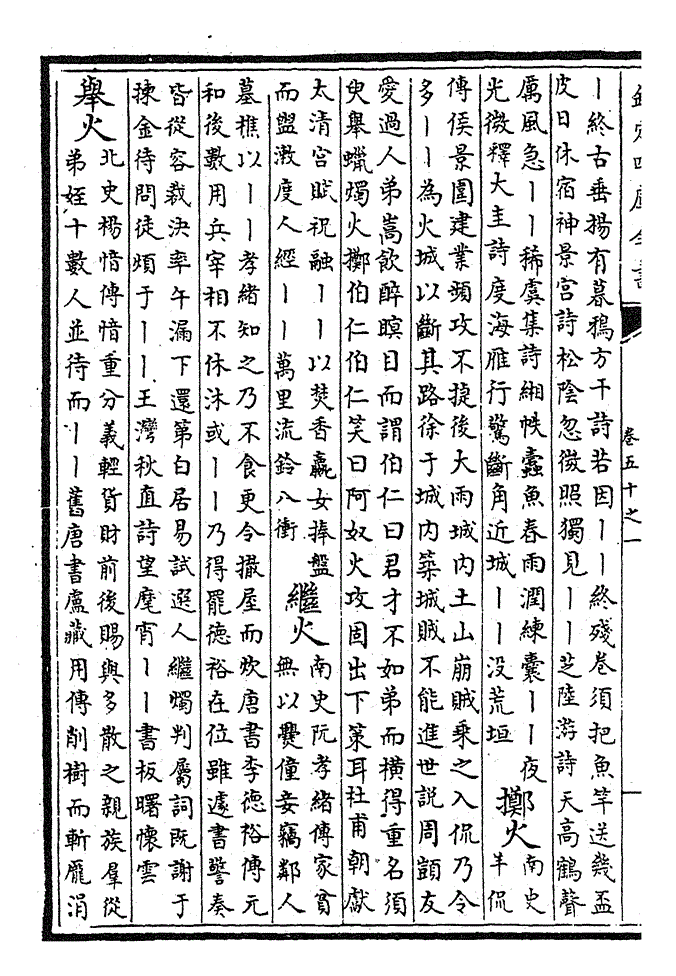 欽定四庫全書
卷五十之一
丨終古垂揚有暮鴉方干詩若因丨丨終殘卷須把魚竿送幾盃
皮日休宿神景宮詩松陰忽微照獨見丨丨芝陸游詩天高鶴聲
厲風急丨丨稀虞集詩緗帙蠹魚春雨潤練囊丨丨夜
光微釋大圭詩度海雁行驚斷角近城丨丨没荒垣
擲火
南史
羊侃
傳侯景圍建業頻攻不捷後大雨城内土山崩賊乗之入侃乃令
多丨丨為火城以斷其路徐于城内築城賊不能進世説周顗友
愛過人弟嵩飲醉瞑目而謂伯仁曰君才不如弟而横得重名須
臾舉蠟燭火擲伯仁伯仁笑曰阿奴火攻固出下策耳杜甫朝獻
太清宫賦祝融丨丨以焚香嬴女捧盤
而盟潄度人經丨丨萬里流鈴八衝
繼火
南史阮孝緒傳家貧
無以爨僮妾竊鄰人
墓樵以丨丨孝緒知之乃不食更令撤屋而炊唐書李德裕傳元
和後數用兵宰相不休沐或丨丨乃得罷德裕在位雖遽書警奏
皆從容裁決率午漏下還第白居易試選人繼燭判屬詞既謝于
揀金待問徒煩于丨丨王灣秋直詩望麾宵丨丨書板曙懷雲
舉火
北史楊愔傳愔重分義輕貨財前後賜與多散之親族羣從
弟姪十數人並待而丨丨舊唐書盧藏用傳削樹而斬龐涓